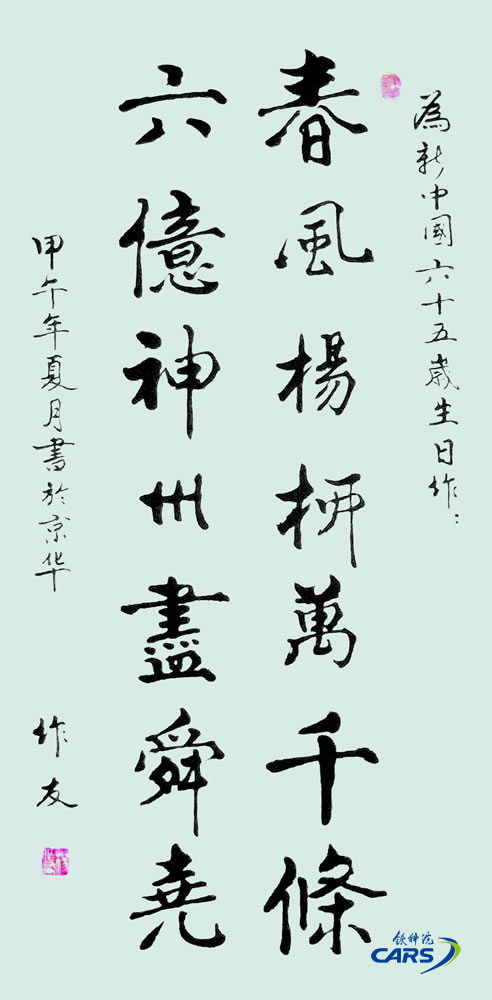 為新中國六十五歲生日作：
春風楊柳萬千條
六億神州盡舜堯
甲午年夏月書於京华
作友
铁科院
CARS